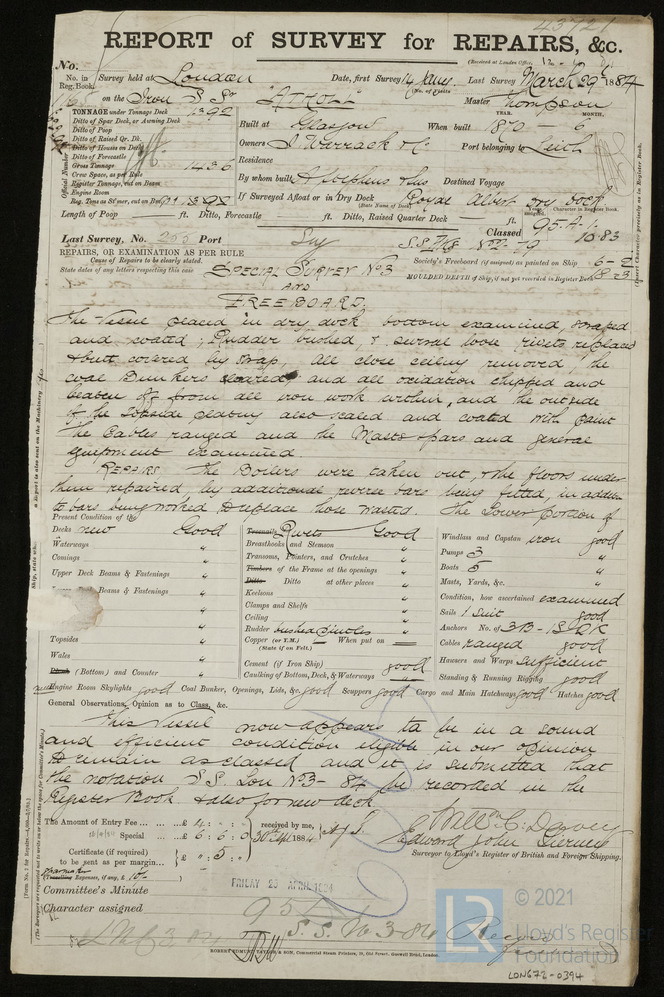 43721
REPORT of SURVEY for REPAIRS, &c.
(Received at London Office,
No.
No. in Reg. Book.
Survey held at London Date, first Survey 14 Jany. Last Survey March 29th 1884
(No. of Visits)
on the Iron S Sr "Atholl" Master Thompson
TONNAGE under Tonnage Deck 1392
Ditto of Spar Deck, or Awning Deck
Ditto of Poop
Ditto of Raised Qr. Dk.
Ditto of Houses on Deck
Ditto of Forecastle
Gross Tonnage 1436
Crew Space, as per Rule
Register Tonnage, cut on Beam
Engine Room
Reg. Tons as St'mer, cut on Beam
Official Number
YEAR. MONTH.
Built at Glasgow When built 1870 6
Owners J Warrack & Co Port belonging to Leith
Residence
By whom built A Stephens & Sons Destined Voyage
If Surveyed Afloat or in Dry Dock Royal Albert Dry Dock
(State Name of Dock)
Length of Poop ft. Ditto, Forecastle ft. Ditto, Raised Quarter Deck ft.
Character in Register Book.
Classed 95-A-1
10.83
Last Survey, No. 255 Port
REPAIRS, OR EXAMINATION AS PER RULE
Cause of Repairs to be clearly stated.
State dates of any letters respecting this case
Special Survey No 3
AND
FREEBOARD.
Society's Freeboard (if assigned) as painted on Ship 6-2
MOULDED DEPTH of Ship, if not yet recorded in Register Book
The Vessel placed in dry dock bottom examined, scraped
and coated, Rudder bushed, & several loose rivets replaced
& butt covered by strap, all close ceiling removed, the
coal Bunkers cleared and all oxidation chipped and
beaten off from all iron work within, and the outside
of the topside plating also scaled and coated with paint
The Cables ranged and the Masts spars and general
equipment examined
REPAIRS. The Boilers were taken out, & the floors under
them repaired, by additional reverse bars being fitted, in addition
to bars being worked to replace those wasted. The Lower portion of
Present Condition of the
Decks new Good
Waterways "
Comings "
Upper Deck Beams & Fastenings "
Beams & Fastenings "
Topsides "
Wales "
(Bottom) and Counter "
Treenails Rivets Good
Breasthooks and Stemson "
Transoms, Pointers, and Crutches "
Timbers of the Frame at the openings "
Ditto Ditto at other places "
Keelsons "
Clamps and Shelfs "
Ceiling "
Rudder bushed Pintles "
Copper (or Y.M.) When put on
(State if on Felt.)
Cement (if Iron Ship) good
Caulking of Bottom, Deck, & Waterways "
Windlass and Capstan iron good
Pumps 3 "
Boats 5 "
Masts, Yards, &c. "
Condition, how ascertained examined
Sails 1 Suit good
Anchors No. of 3B-1S-2K
Cables ranged good
Hawsers and Warps Sufficient
Standing & Running Rigging good
Engine Room Skylights good Coal Bunker, Openings, Lids, &c. good Scuppers good Cargo and Main Hatchways good Hatches good
General Observations, Opinion as to Class, &c.
This Vessel now appears to be in a sound
and efficient condition eligible in our opinion
to remain as classed and it is submitted that
the notation S.S. Lon No 3- 84 be recorded in the
Register Book & also for new deck
The Amount of Entry Fee £ 4 : - :
Special £ 6 : 6 : 0
received by me,
1884
Certificate (if required) £ " 5 : "
to be sent as per margin
Expenses, if any, £
Edward John Tierney
Surveyor to Lloyd's Register of British and Foreign Shipping.
Committee's Minute
FRIDAY 25 APRIL 1884
Character assigned
95 A 1
S.S. No 3-84
LMC 3.84
ROBERT EDMUND TAYLOR & SON, Commercial Steam Printers, 19, Old Street, Goswell Road, London.
© 2021
Lloyd's Register
Foundation
LON672-0394